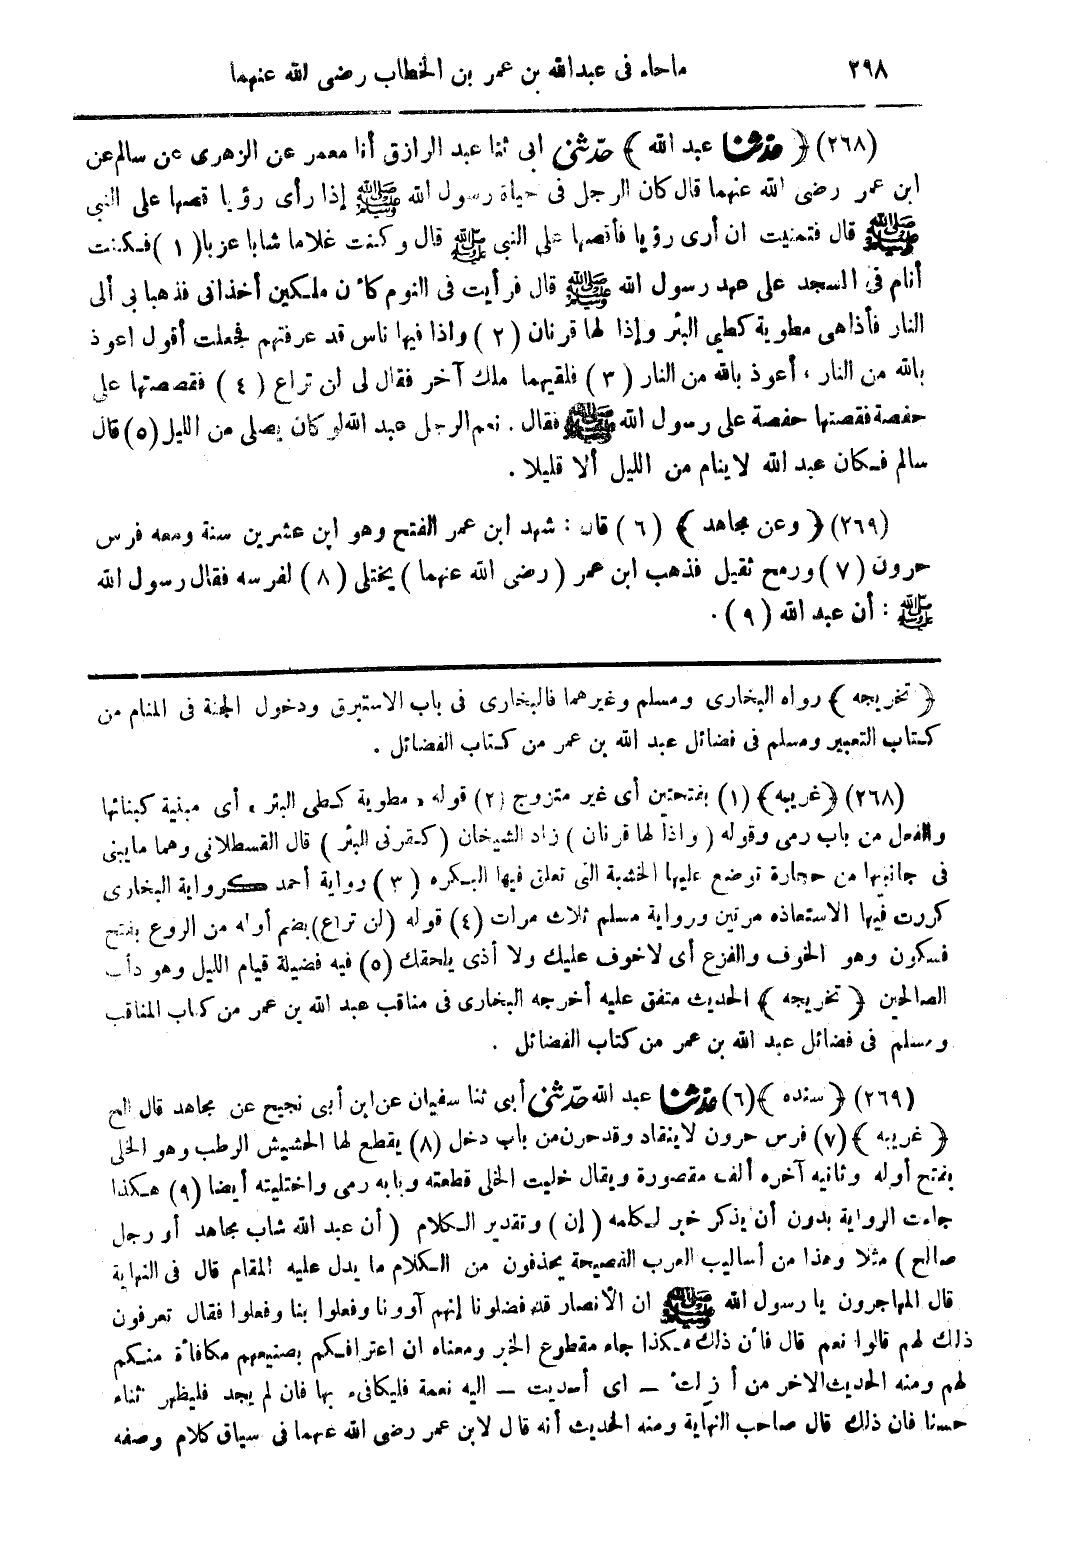 ٢٩٨ ماجاء فى عبدالله بن عمر بن الخطاب رضى الله عنهما
(٢٦٨) ﴿ حدثنا عبد الله ﴾ حدثنى ابى ثنا عبد الرازق أنا معمر عن الزهرى عن سالم عن
ابن عمر رضى الله عنهما قال كان الرجل فى حياة رسول الله ﷺ إذا رأى رؤيا قصها على النبى
ﷺ قال فتمنيت ان أرى رؤيا فأقصها على النبى ﷺ قال وكنت غلاما شابا عزبا (١) فكنت
أنام فى المسجد على عهد رسول الله ﷺ قال فرأيت فى النوم كأن ملكين أخذانى فذهبا بى ألى
النار فأذاهى مطوية كطي البئر وإذا لها قرنان (٢) واذا فيها ناس قد عرفتهم فجعلت أقول اعوذ
بالله من النار ، أعوذ بالله من النار (٣) فلقيهما ملك آخر فقال لى لن تراع (٤) فقصصتها على
حفصة فقصتها حفصة على رسول الله ﷺ فقال . نعم الرجل عبد الله لو كان يصلى من الليل (٥) قال
سالم فكان عبد الله لا ينام من الليل ألا قليلا .
(٢٦٩) ﴿ وعن مجاهد ﴾ (٦) قال : شهد ابن عمر الفتح وهو ابن عشرين سنة ومعه فرس
حرون (٧) ورمح ثقيل فذهب ابن عمر (رضى الله عنهما) يختلى (٨) لفرسه فقال رسول الله
ﷺ : أن عبد الله (٩) .
﴿ تخريجه ﴾ رواه البخارى ومسلم وغيرهما فالبخارى فى باب الاستبرق ودخول الجنة فى المنام من
كتاب التعبير ومسلم فى فضائل عبد الله بن عمر من كتاب الفضائل .
(٢٦٨) ﴿غريبه﴾ (١) بفتحتين أى غير متزوج (٢) قوله ، مطوية كطى البئر ، أى مبنية كبنائها
والفعل من باب رمى وقوله ( واذا لها قرنان ) زاد الشيخان (كقرنى البئر ) قال القسطلانى وهما مايبنى
فى جانبيها من حجارة توضع عليها الخشبة التى تعلق فيها البكره (٣) رواية أحمد كرواية البخارى
كررت فيها الاستعاذه مرتين ورواية مسلم ثلاث مرات (٤) قوله (لن تراع) بضم أوله من الروع بفتح
فسكون وهو الخوف والفزع أى لاخوف عليك ولا أذى يلحقك (٥) فيه فضيلة قيام الليل وهو دأب
الصالحين ﴿ تخريجه ﴾ الحديث متفق عليه أخرجه البخارى فى مناقب عبد الله بن عمر من كتاب المناقب
ومسلم فى فضائل عبد الله بن عمر من كتاب الفضائل .
(٢٦٩) ﴿ سنده ﴾ (٦) حدثنا عبد الله حدثنى أبى ثنا سفيان عن ابن أبى نجيح عن مجاهد قال الخ
﴿ غريبه ﴾ (٧) فرس حرون لاينقاد وقد حرن من باب دخل (٨) يقطع لها الحشيش الرطب وهو الخلى
بفتح أوله وثانيه آخره ألف مقصورة ويقال خليت الخلى قطعته وبابه رمى واختليته أيضا (٩) هكذا
جاءت الرواية بدون أن يذكر خبر لكلمه ( إن ) وتقدير الكلام ( أن عبد الله شاب مجاهد أو رجل
صالح ) مثلا وهذا من أساليب العرب الفصيحة يحذفون من الكلام ما يدل عليه المقام قال فى النهاية
قال المهاجرون يا رسول الله ﷺ ان الأنصار قد فضلونا إنهم آوونا وفعلوا بنا وفعلوا فقال تعرفون
ذلك لهم قالوا نعم قال فأن ذلك هكذا جاء مقطوع الخبر ومعناه ان اعترافكم بصنيعهم مكافاة منكم
لهم ومنه الحديث الاخر من أزلت – اى أسديت – اليه نعمة فليكافىء بها فان لم يجد فليظهر ثناء
حسنا فان ذلك قال صاحب النهاية ومنه الحديث أنه قال لابن عمر رضى الله عنهما فى سياق كلام وصفه